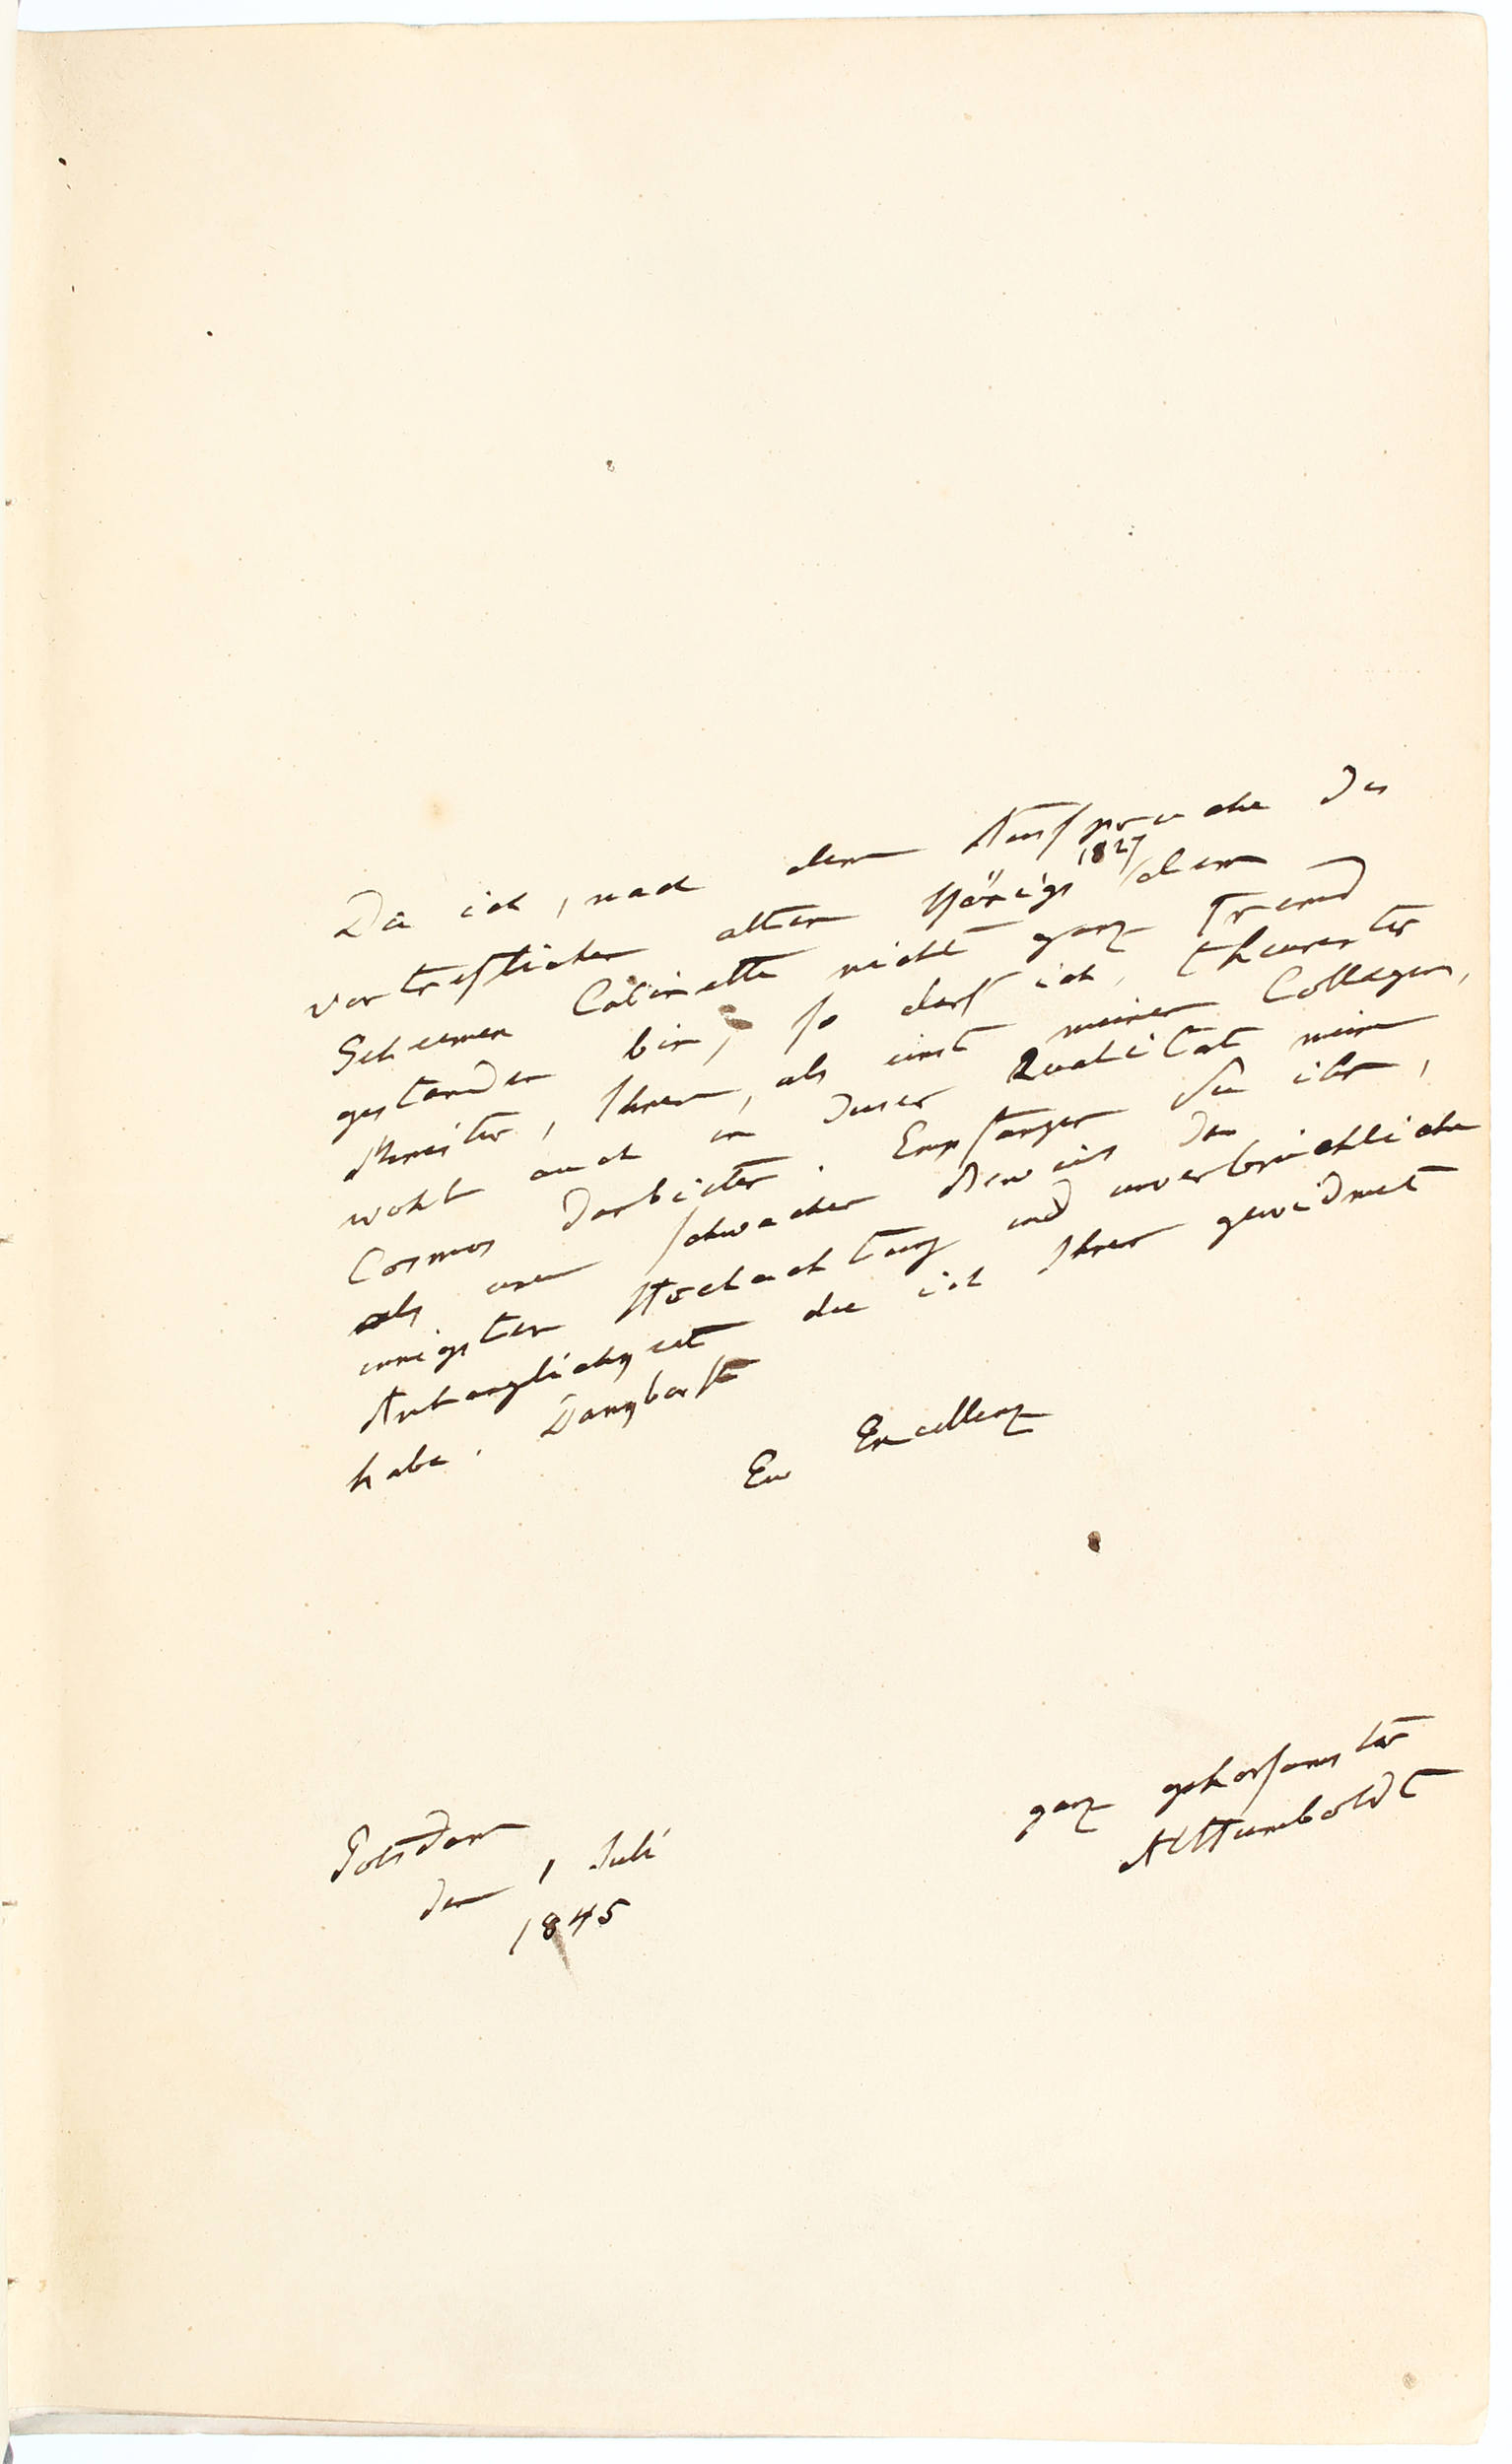 Da ich, nach dem Ausspruche des
vortreflichen alten Königs 1827 dem
Geheimen Cabinette nicht ganz fremd
gestanden bin, so darf ich, theurester
Minister, Ihnen, als einst meinem Collegen,
wohl auch in dieser Qualität mein
Cosmos darbieten. Empfangen Sie ihn,
als einen schwachen Beweis der
innigsten Hochachtung und unverbrüchlichen
Anhänglichkeit die ich Ihnen gewidmet
habe. Dankbarst
Ew Excellenz
ganz gehorsamster
AlHumboldt
Potsdam
den 1 Juli
1845